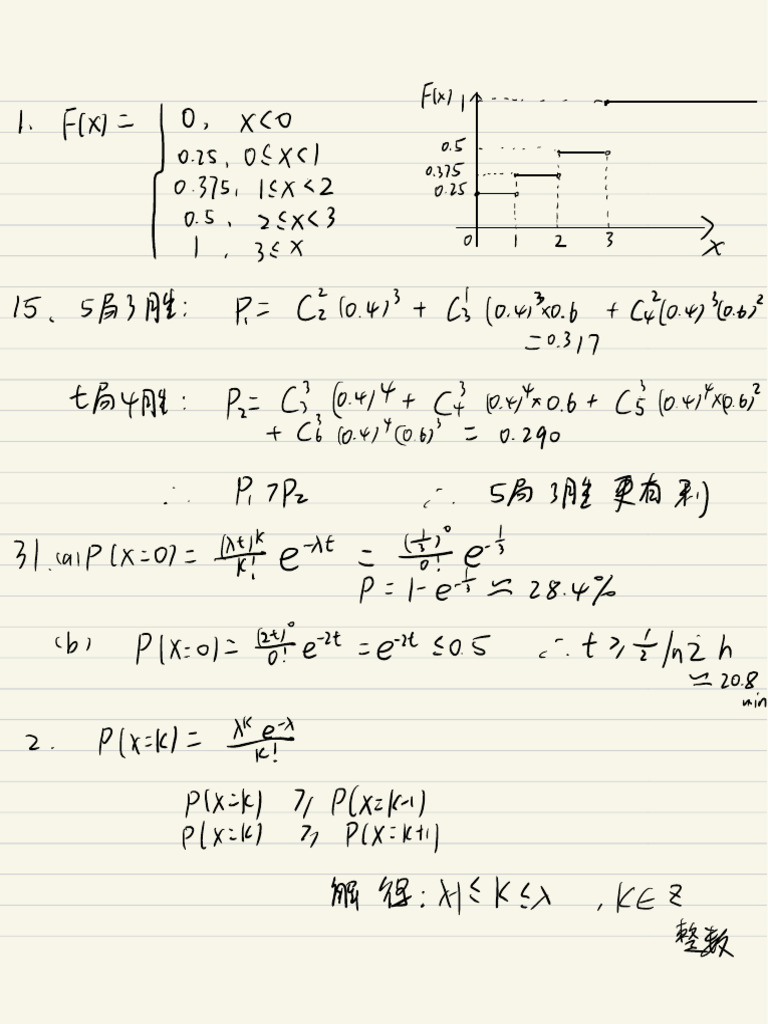 1. F(x) = { 0, x<0
0.25, 0≤x<1
0.375, 1≤x<2
0.5, 2≤x<3
1, 3≤x
F(x) 1
0.5
0.375
0.25
0 1 2 3 x
15、5局3胜: P₁= C₂²(0.4)³ + C₃¹(0.4)³×0.6 + C₄²(0.4)³(0.6)²
=0.317
七局4胜: P₂= C₃³(0.4)⁴ + C₄³(0.4)⁴×0.6 + C₅³(0.4)⁴×(0.6)²
+ C₆³(0.4)⁴(0.6)³ = 0.290
∴ P₁>P₂ ∴ 5局3胜更有利
31.(a) P(X=0) = (λt)ᵏ/k! e^(-λt) = (1/3)⁰/0! e^(-1/3)
P = 1-e^(-1/3) ≈ 28.4%
(b) P(X=0) = (2t)⁰/0! e^(-2t) = e^(-2t) ≤0.5 ∴ t ≥ 1/2 ln2 h
≈ 20.8
min
2. P(X=k) = λᵏe^(-λ)/k!
P(X=k) ≥ P(X=k-1)
P(X=k) ≥ P(X=k+1)
解得: λ-1≤k≤λ ,k∈Z
整数